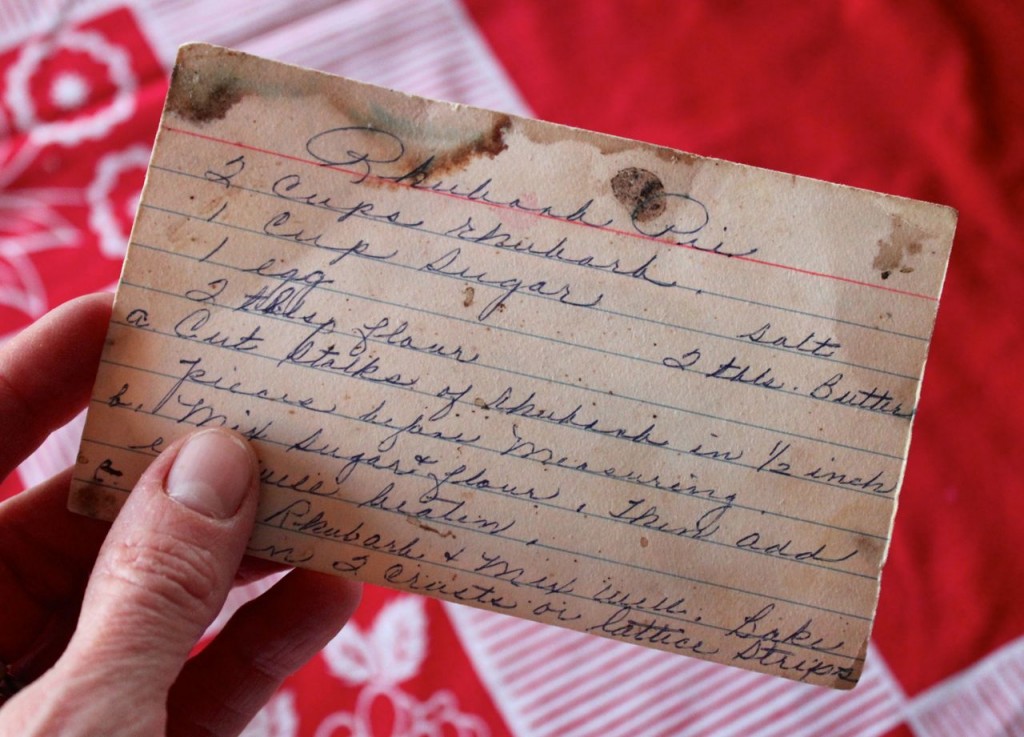 Rhubarb Pie
2 Cups rhubarb.
1 Cup Sugar
1 egg Salt
2 tblsp flour 2 tbls. Butter
a Cut Stalks of rhubarb in 1/2 inch
pieces before Measuring.
b. Mix Sugar & flour. Then add
well beaten.
c Rhubarb & Mix Well. Bake
in 2 Crusts or lattice Strips